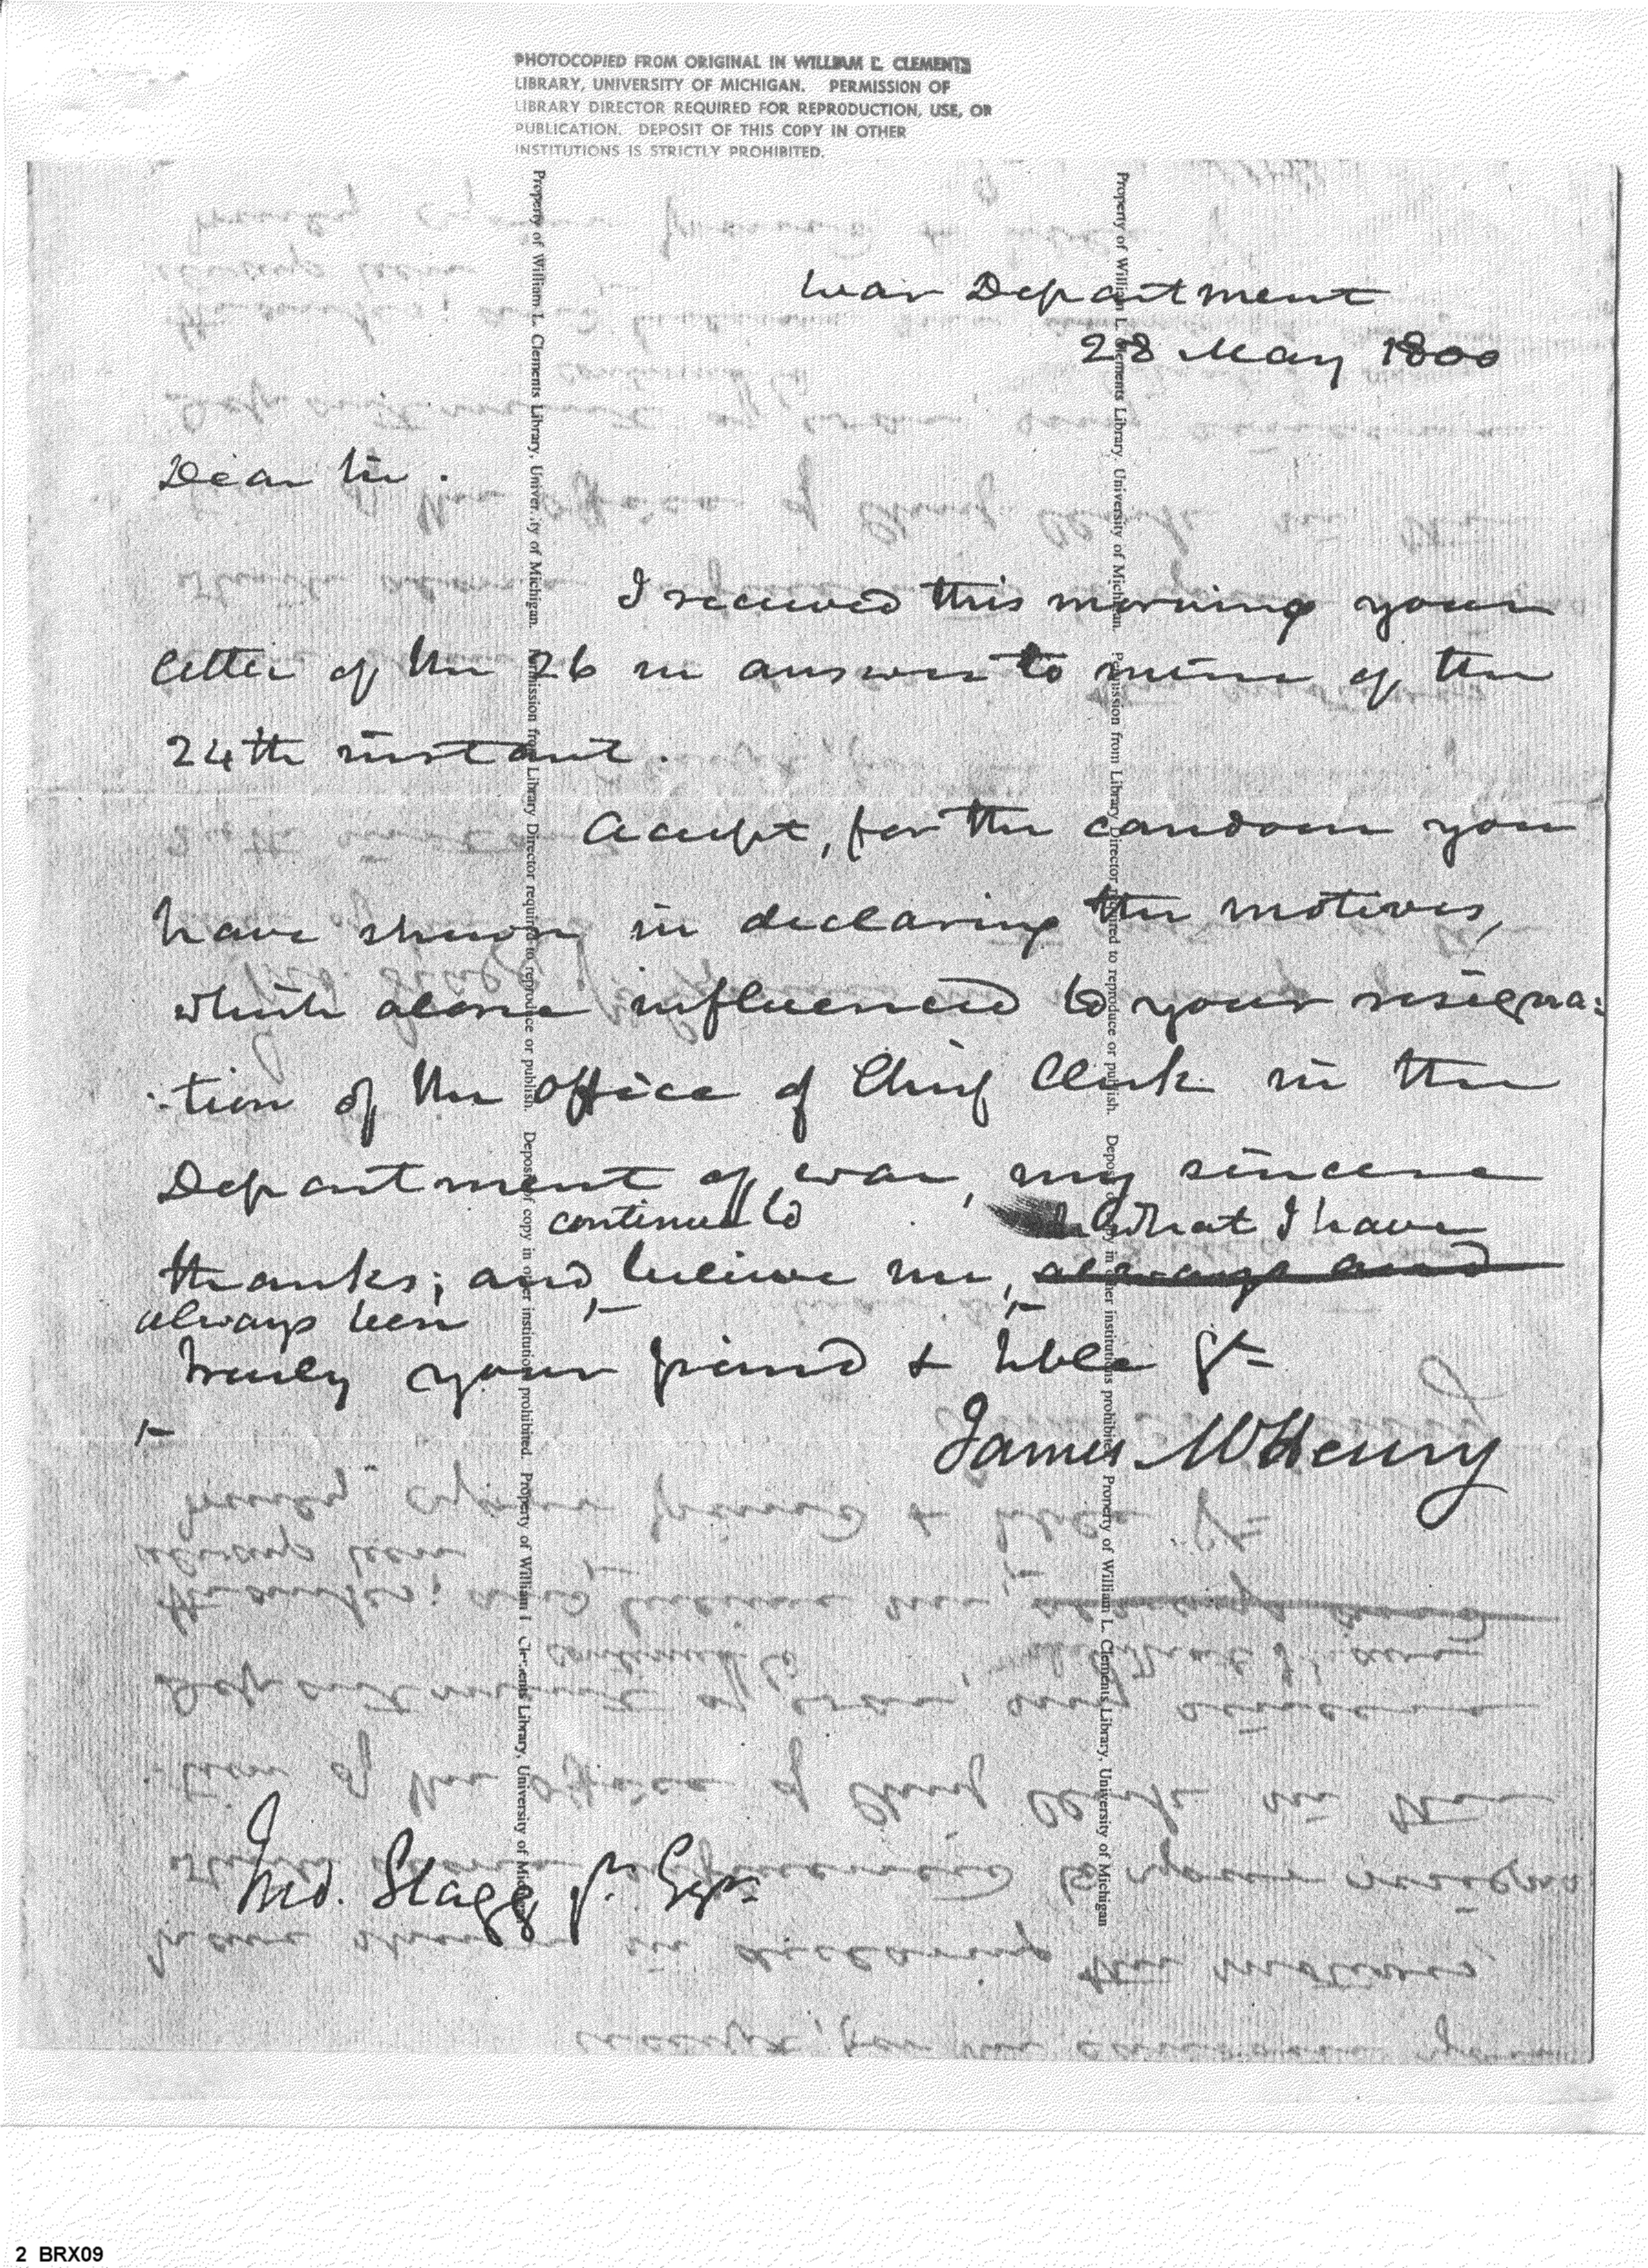 PHOTOCOPIED FROM ORIGINAL IN WILLIAM L. CLEMENTS
LIBRARY, UNIVERSITY OF MICHIGAN. PERMISSION OF
LIBRARY DIRECTOR REQUIRED FOR REPRODUCTION, USE, OR
PUBLICATION. DEPOSIT OF THIS COPY IN OTHER
INSTITUTIONS IS STRICTLY PROHIBITED.
War Department
28 May 1800
Dear Sir.
I received this morning your
letter of the 26 in answer to mine of the
24th instant.
Accept, for the candour you
have shewn in declaring the motives,
which alone influenced to your resigna:
-tion of the office of Chief Clerk in the
Department of war, my sincere
continue to what I have
thanks; and believe me, always and
always been
truly your friend & hble St
James McHenry
Jno. Stagg Jr. Esqr.
Property of William L. Clements Library, University of Michigan. Permission from Library Director required to reproduce or publish. Deposit of copy in other institutions prohibited. Property of William L. Clements Library, University of Michigan
Property of William L. Clements Library, University of Michigan. Permission from Library Director required to reproduce or publish. Deposit of copy in other institutions prohibited. Property of William L. Clements Library, University of Michigan
2 BRX09